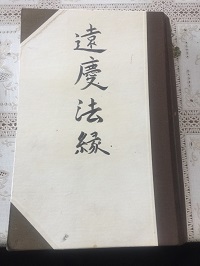 遠慶法縁